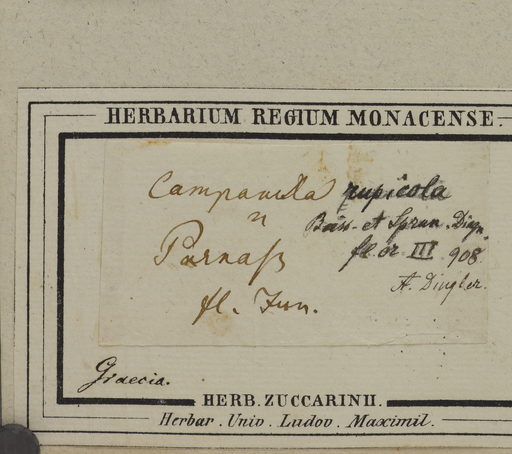 HERBARIUM REGIUM MONACENSE.
Campanula rupicola
n
Boiss. et Sprun. Diagn.
Parnaß
fl. or. III 908
fl. Jun.
A. Dingler.
Graecia.
HERB. ZUCCARINII.
Herbar. Univ. Ludov. Maximil.